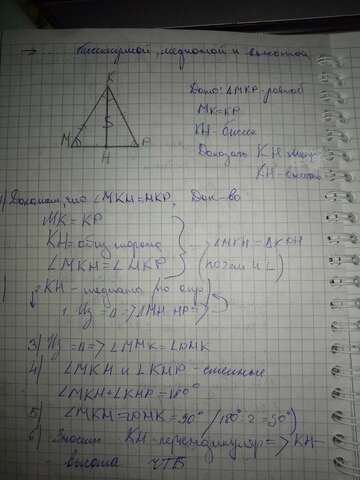 биссектрисой, медианой и высотой.
K
Дано: ΔMKP-равноб
MK=KP
KH-бисс
Доказать KH мед
KH-высота
M
S
P
H
1) Докажем, что ∠MKH=HKP, Док-во
MK=KP
KH=общ. сторона
∠MKH=∠HKP
ΔMKH=Δ
(по 2 ст и ∠)
2. KH-медиана (по опр)
1. Из =Δ=> MH=HP=>
3) Из =Δ=>
4) и ∠KHP-смежные
+∠KHP=180°
5) =90° (180°:2=90°)
6) Значит KH-перпендикуляр=>KH-
- высота ЧТД